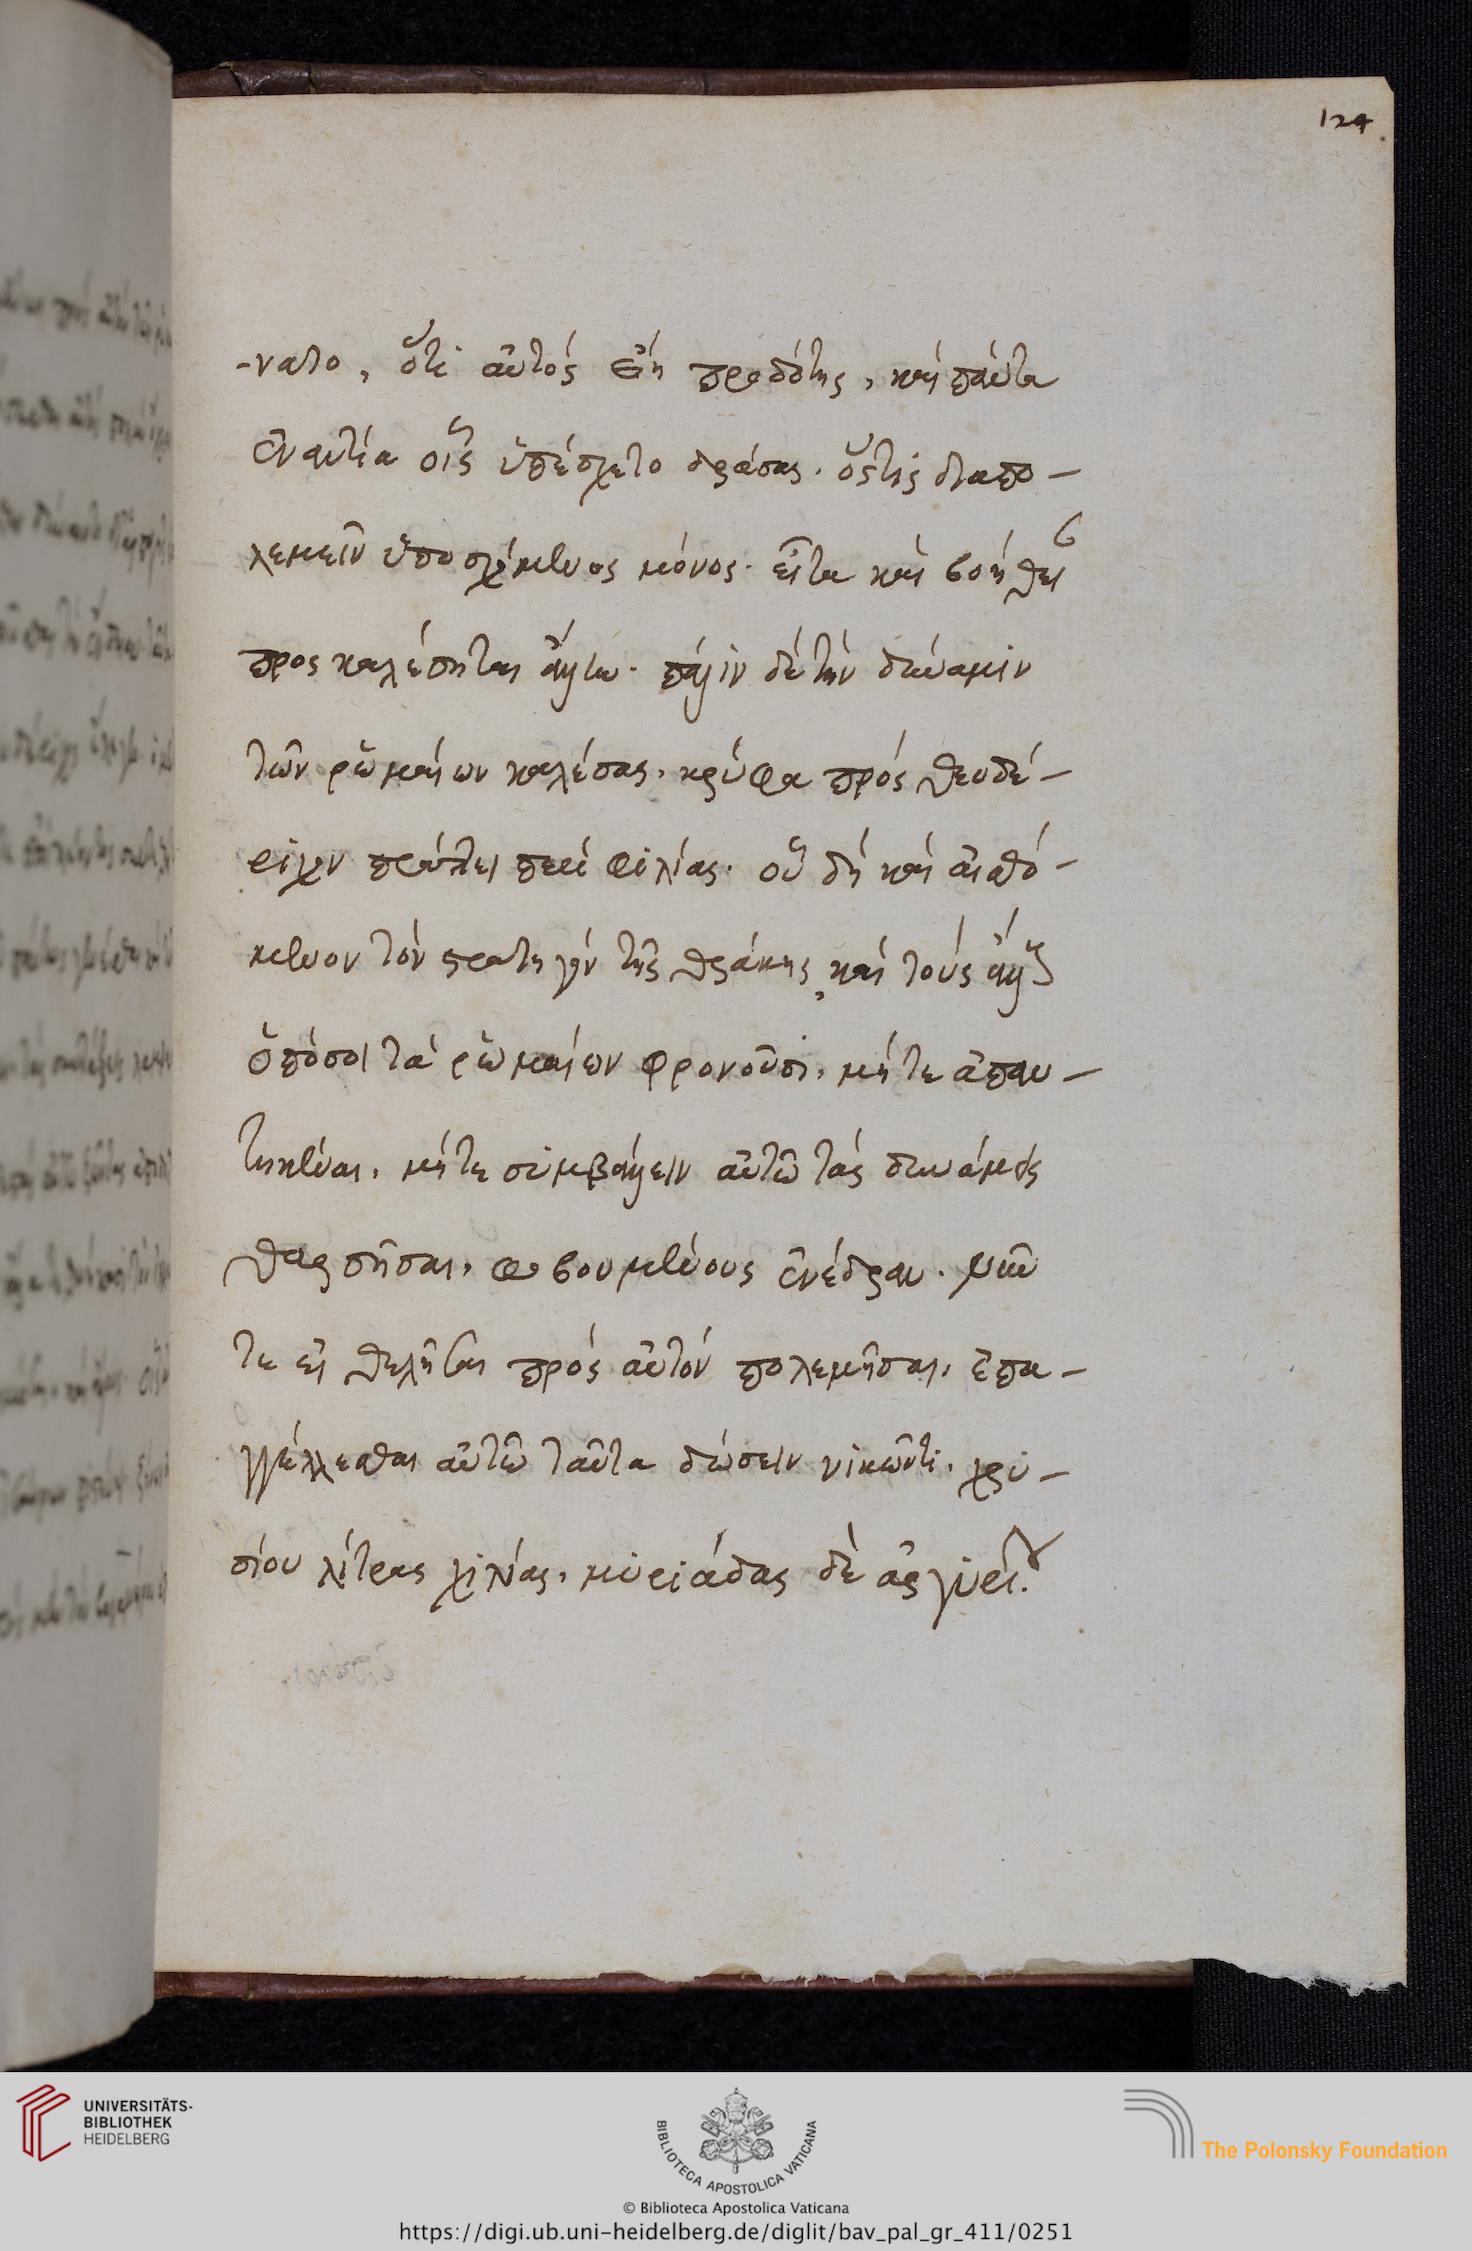 129
-νατο, ὅτι αὐτὸς εἴη προδότης, καὶ πάντα
ἐναντία οἷς ὑπέσχετο δράσας. ὅστις διαπο-
λεμεῖν ὑποσχόμενος μόνος. εἶτα καὶ βοήθει
προσκαλέσηται ἄλλω. πάλιν δὲ τὴν δύναμιν
τῶν ῥωμαίων καλέσας, κρύφα πρὸς θευδέ-
ριχον πράττει περὶ φιλίας. οὗ δὴ καὶ αἰσθό-
μενον τὸν στρατηγὸν τῆς θράκης, καὶ τοὺς ἄλλους
ὁπόσοι τὰ ῥωμαίων φρονοῦσι, μήτε ἀπαν-
τῆκέναι, μήτε συμβάλλειν αὐτῶ τὰς δυνάμεις
θαρσῆσαι, φοβουμένους ἐνέδραν. νῦν
τε εἰ θελῆσαι πρὸς αὐτὸν πολεμῆσαι, ἐπα-
γγέλλεσθαι αὐτῶ ταῦτα δώσειν νικῶντι, χρυ-
σίου λίτρας χιλίας, μυριάδας δὲ ἀργυρίου.
UNIVERSITÄTS-
BIBLIOTHEK
HEIDELBERG
BIBLIOTECA APOSTOLICA VATICANA
© Biblioteca Apostolica Vaticana
https://digi.ub.uni-heidelberg.de/diglit/bav_pal_gr_411/0251
The Polonsky Foundation